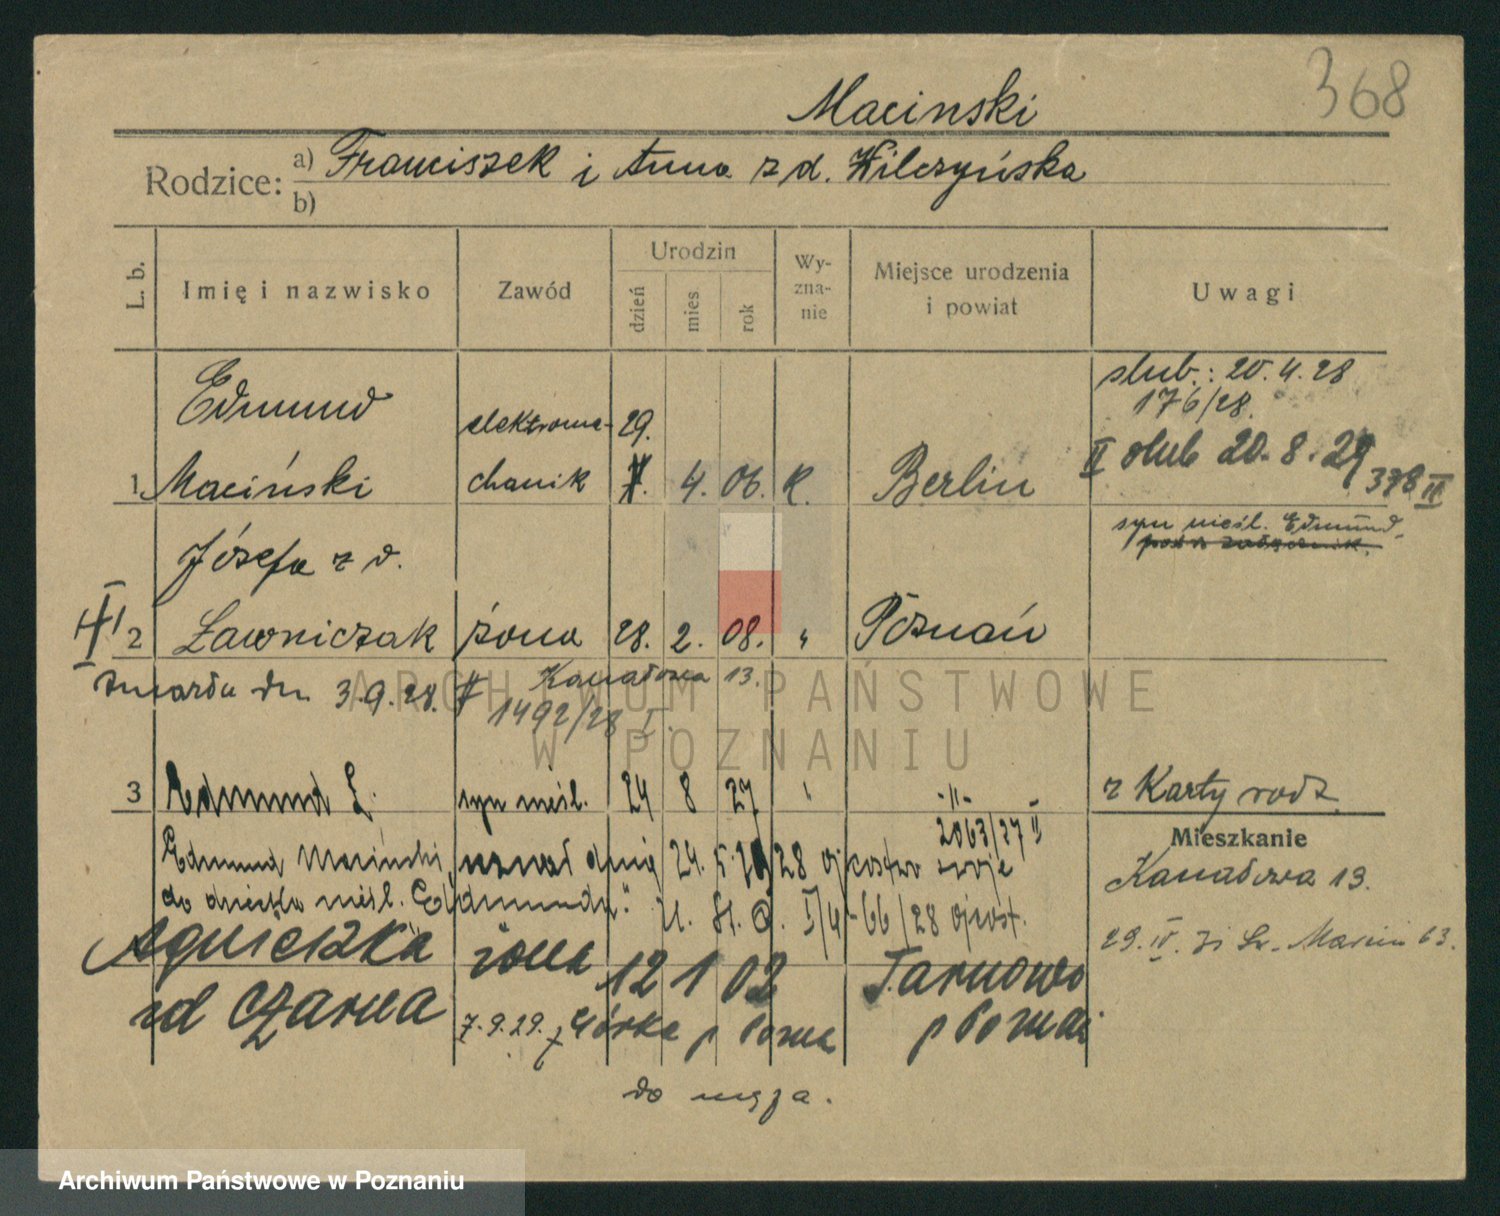 368
Macinski
Rodzice: a) Franciszek i Anna z d. Wilczyńska
b)
L. b. Imię i nazwisko Zawód Urodzin dzień mies rok Wyznanie Miejsce urodzenia i powiat Uwagi
ślub.: 20.4.28
176/28.
Edmund elektrome- 29.
II ślub 20.8.29
1 Maciński chanik 4. 06. k. Berlin 378 II
syn nieśl. Edmund
Józefa z d.
2 Ławniczak żona 28. 2. 08. " Poznań
zmarła dn. 3.9.28. Kanałowa 13.
1492/28 I.
3 Edmund Ł. syn nieśl. 24 8 27 " -"- z Karty rodz.
2063/27 II
Mieszkanie
Edmund Maciński uznał dnia 24. 5. 28 ojcostwo swoje
Kanałowa 13.
do dziecka nieśl. "Edmunda".
66/28 ojcost.
29. IV. Św. Marcin 63.
Agnieszka żona 12 1 02 Tarnowo
zd Czarna 7.9.29. Górka p Pozna p Poznań
do męża.
ARCHIWUM PAŃSTWOWE
W POZNANIU
Archiwum Państwowe w Poznaniu